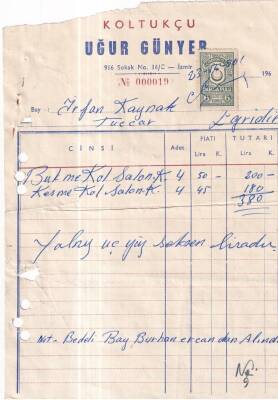 KOLTUKÇU
UĞUR GÜNYER
956 Sokak No. 16/C — İzmir
№ 000019
196
Bay : İrfan Kaynak
Tuccar
Egridir
CİNSİ Adet FİATI TUTARI
Lira K. Lira K.
Bukme Kol Salon.K. 4 50 — 200 —
Kesme Kol Salon.K. 4 45 180
380
Yalnız uç yüz seksen liradır.
Not. Bedeli Bay Burhan ercan dan Alındı